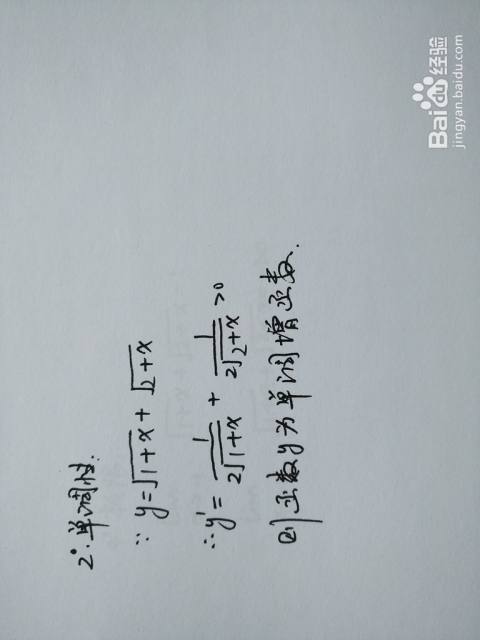 2°.单调性.
∵ y=√1+x + √2+x
∴y'= 1/2√1+x + 1/2√2+x >0
则函数y为单调增函数.
Baidu经验
jingyan.baidu.com